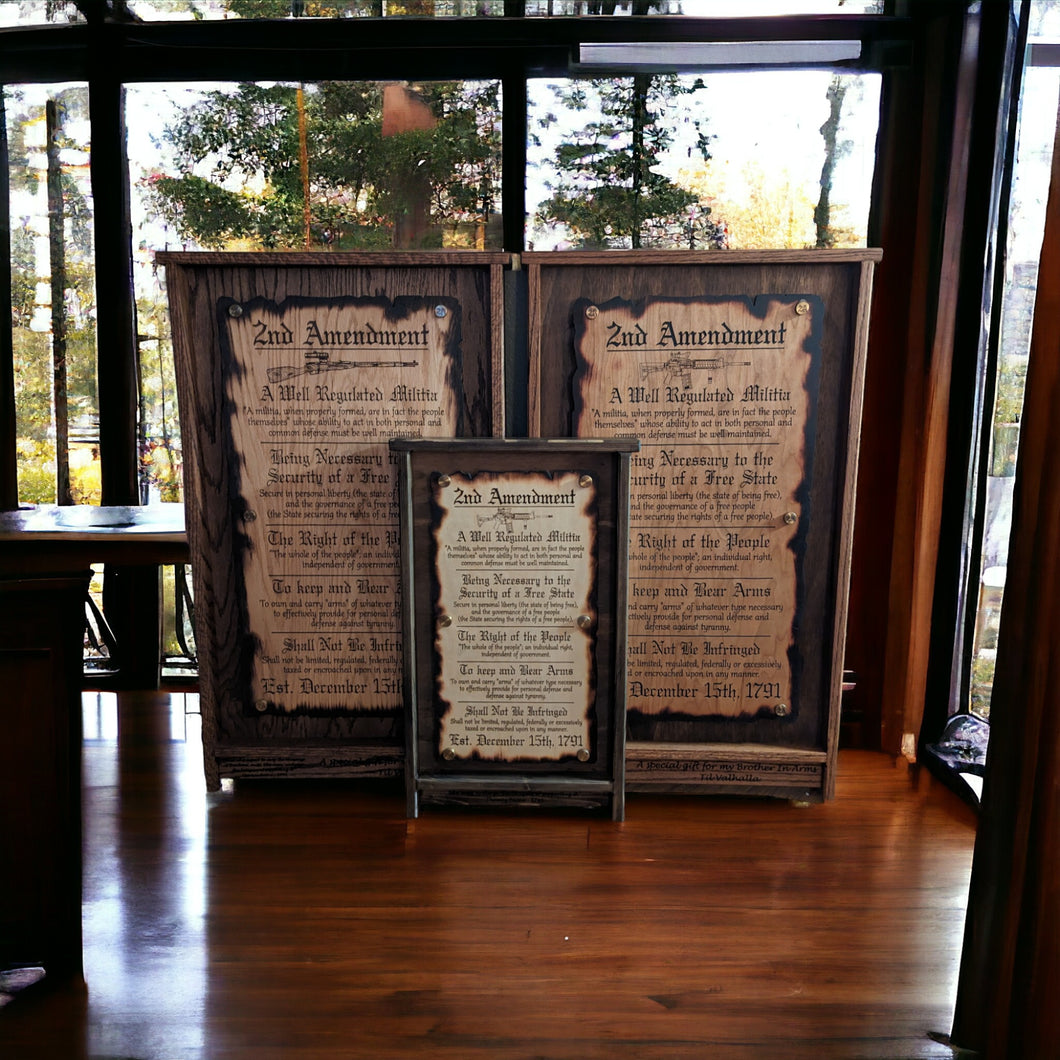 2nd Amendment
A Well Regulated Militia
"A militia, when properly formed, are in fact the people
themselves" whose ability to act in both personal and
common defense must be well maintained.
Being Necessary to the
Security of a Free
Secure in personal liberty (the state of
and the governance of a free
(the State securing the rights of a free
The Right of the
"The whole of the people"; an individ
independent of government.
To keep and Bear
To own and carry "arms" of whatever ty
to effectively provide for personal def
defense against tyranny.
Shall Not Be Infrin
Shall not be limited, regulated, federally
taxed or encroached upon in any m
Est. December 15th
A special gift for
2nd Amendment
A Well Regulated Militia
"A militia, when properly formed, are in fact the people
themselves" whose ability to act in both personal and
common defense must be well maintained.
Being Necessary to the
Security of a Free State
Secure in personal liberty (the state of being free),
and the governance of a free people
(the State securing the rights of a free people).
The Right of the People
"The whole of the people"; an individual right,
independent of government.
To keep and Bear Arms
To own and carry "arms" of whatever type necessary
to effectively provide for personal defense and
defense against tyranny.
Shall Not Be Infringed
Shall not be limited, regulated, federally or excessively
taxed or encroached upon in any manner.
Est. December 15th, 1791
2nd Amendment
A Well Regulated Militia
"A militia, when properly formed, are in fact the people
themselves" whose ability to act in both personal and
common defense must be well maintained.
Being Necessary to the
Security of a Free State
in personal liberty (the state of being free),
and the governance of a free people
State securing the rights of a free people).
Right of the People
whole of the people"; an individual right,
independent of government.
keep and Bear Arms
and carry "arms" of whatever type necessary
effectively provide for personal defense and
defense against tyranny.
all Not Be Infringed
be limited, regulated, federally or excessively
or encroached upon in any manner.
December 15th, 1791
A special gift for my Brother In Arms
Til Valhalla